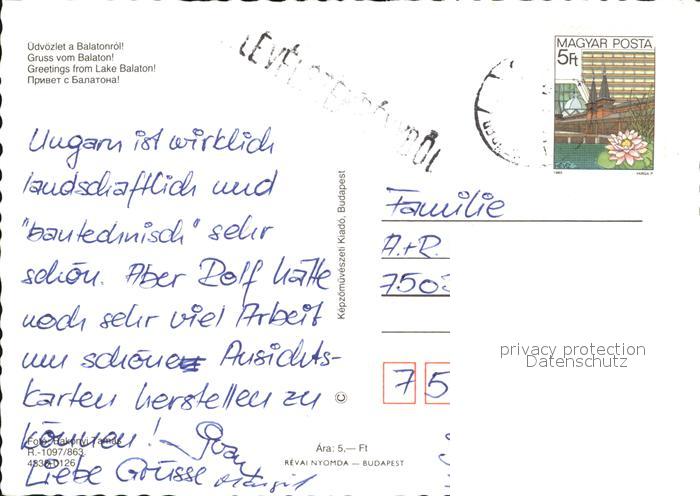 Üdvözlet a Balatonról!
Gruss vom Balaton!
Greetings from Lake Balaton!
Привет с Балатона!
LEVÉLSZEKRÉNYBŐL
MAGYAR POSTA
5Ft
1983
VARGA P.
Ungarn ist wirklich
landschaftlich und
"bautechnisch" sehr
schön. Aber Rolf hätte
noch sehr viel Arbeit
um schöne Ansichts-
karten herstellen zu
können!
Liebe Grüsse
Foto: Bakonyi Tamás
R.-1097/863
Képzőművészeti Kiadó, Budapest
©
Ára: 5,— Ft
RÉVAI NYOMDA — BUDAPEST
Familie
A.+R.
750
75
privacy protection
Datenschutz